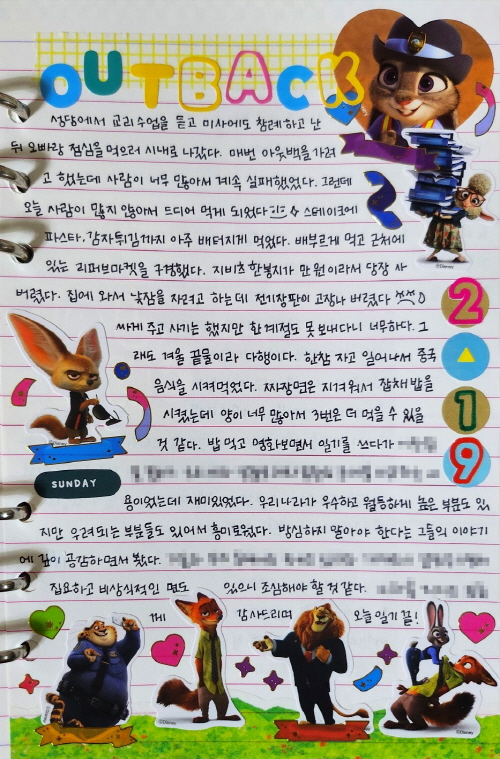 OUTBACK
성당에서 교리수업을 듣고 미사에도 참례하고 난
뒤 오빠랑 점심을 먹으러 시내로 나갔다. 매번 아웃백을 가려
고 했는데 사람이 너무 많아서 계속 실패했었다. 그런데
오늘 사람이 많지 않아서 드디어 먹게 되었다 스테이크에
파스타, 감자튀김까지 아주 배터지게 먹었다. 배부르게 먹고 근처에
있는 리퍼브마켓을 구경했다. 지비츠 한봉지가 만 원이라서 당장 사
버렸다. 집에 와서 낮잠을 자려고 하는데 전기장판이 고장나 버렸다
싸게 주고 사기는 했지만 한 계절도 못 보내다니 너무하다. 그
래도 겨울 끝물이라 다행이다. 한참 자고 일어나서 중국
음식을 시켜먹었다. 짜장면은 지겨워서 잡채밥을
시켰는데 양이 너무 많아서 3번은 더 먹을 수 있을
것 같다. 밥 먹고 영화보면서 일기를 쓰다가
용이었는데 재미있었다. 우리나라가 우수하고 월등하게 높은 부분도 있
지만 우려되는 부분들도 있어서 흥미로웠다. 방심하지 말아야 한다는 그들의 이야기
에 깊이 공감하면서 봤다.
집요하고 비상식적인 면도 있으니 조심해야 할 것 같다.
께 감사드리며 오늘 일기 끝!
2
2
1
9
SUNDAY
©Disney
©Disney
©Disney
©Disney